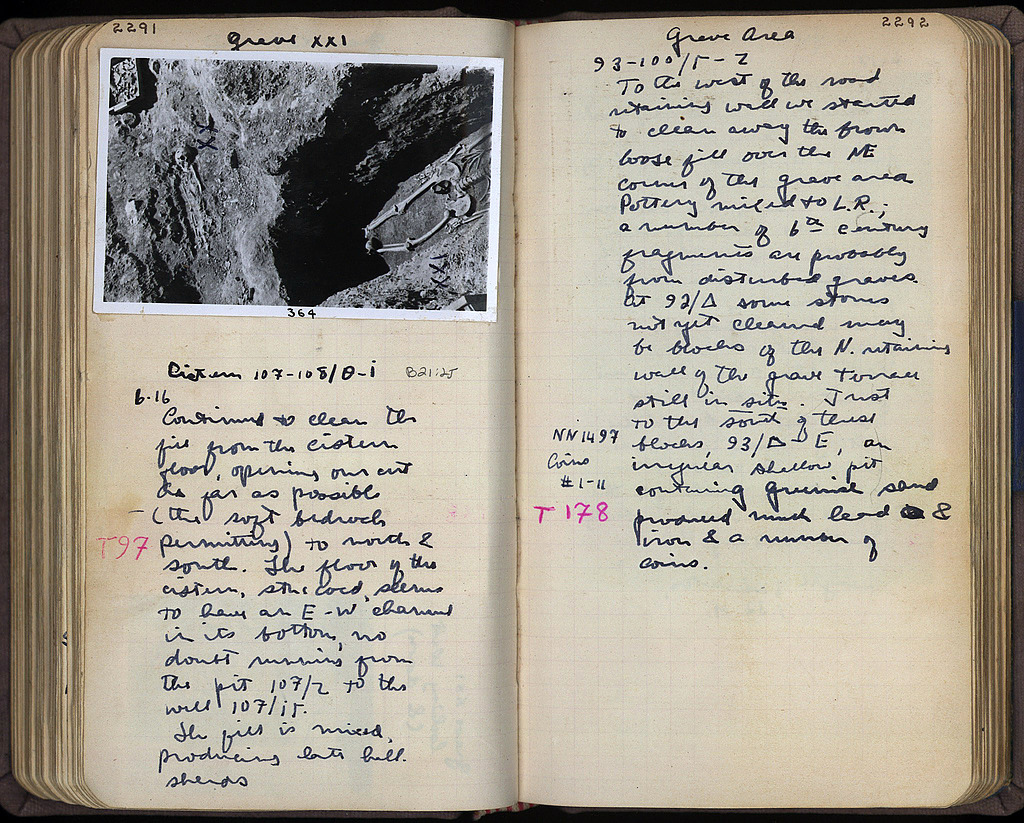 2291
Grave XXI
XX
XXI
364
Cistern 107-108/Θ-I B21:25
6.16
Continued to clean the
fill from the cistern
floor, opening our cut
as far as possible
(the soft bedrock
T97
permitting) to north &
south. The floor of the
cistern, stuccoed, seems
to have an E-W channel
in its bottom, no
doubt running from
the pit 107/Z to the
well 107/ΙΣ.
The fill is mixed,
producing late hell.
sherds
2292
Grave Area
93-100/Γ-Z
To the west of the road
retaining wall we started
to clean away the brown
loose fill over the NE
corner of the grave area
Pottery mixed to L.R.;
a number of 6th century
fragments are probably
from disturbed graves.
At 92/Δ some stones
not yet cleared may
be blocks of the N. retaining
wall of the grave terrace
still in situ. Just
to the south of these
NN1497
Coins
#1-11
blocks, 93/Δ-E, an
irregular shallow pit
containing greenish sand
T178
produced much lead &
iron & a number of
coins.